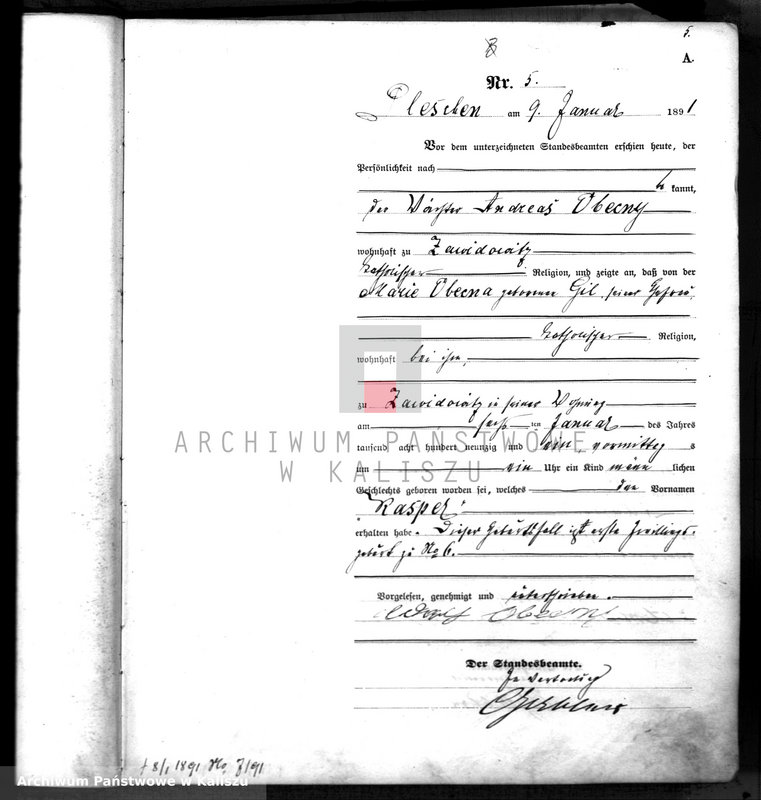 5.
8
A.
Nr. 5.
Pleschen am 9. Januar 1891
Vor dem unterzeichneten Standesbeamten erschien heute, der
Persönlichkeit nach
kannt,
der Wächter Andreas Obecny
wohnhaft zu Zawidowitz
katholischer Religion, und zeigte an, daß von der
Marie Obecna geborenen Gil, seiner Ehefrau,
katholischer Religion,
wohnhaft bei ihm,
zu Zawidowitz in seiner Wohnung
am sechsten Januar des Jahres
tausend acht hundert neunzig und ein, vormittags
um ein Uhr ein Kind männlichen
Geschlechts geboren worden sei, welches den Vornamen
Kasper
erhalten habe. Dieser Geburtsfall ist erste Zwillings-
geburt zu No 6.
Vorgelesen, genehmigt und unterschrieben.
Obecny
Der Standesbeamte.
In Vertretung
† 8/1 1891 No 7/91
ARCHIWUM PAŃSTWOWE
W KALISZU
Archiwum Państwowe w Kaliszu